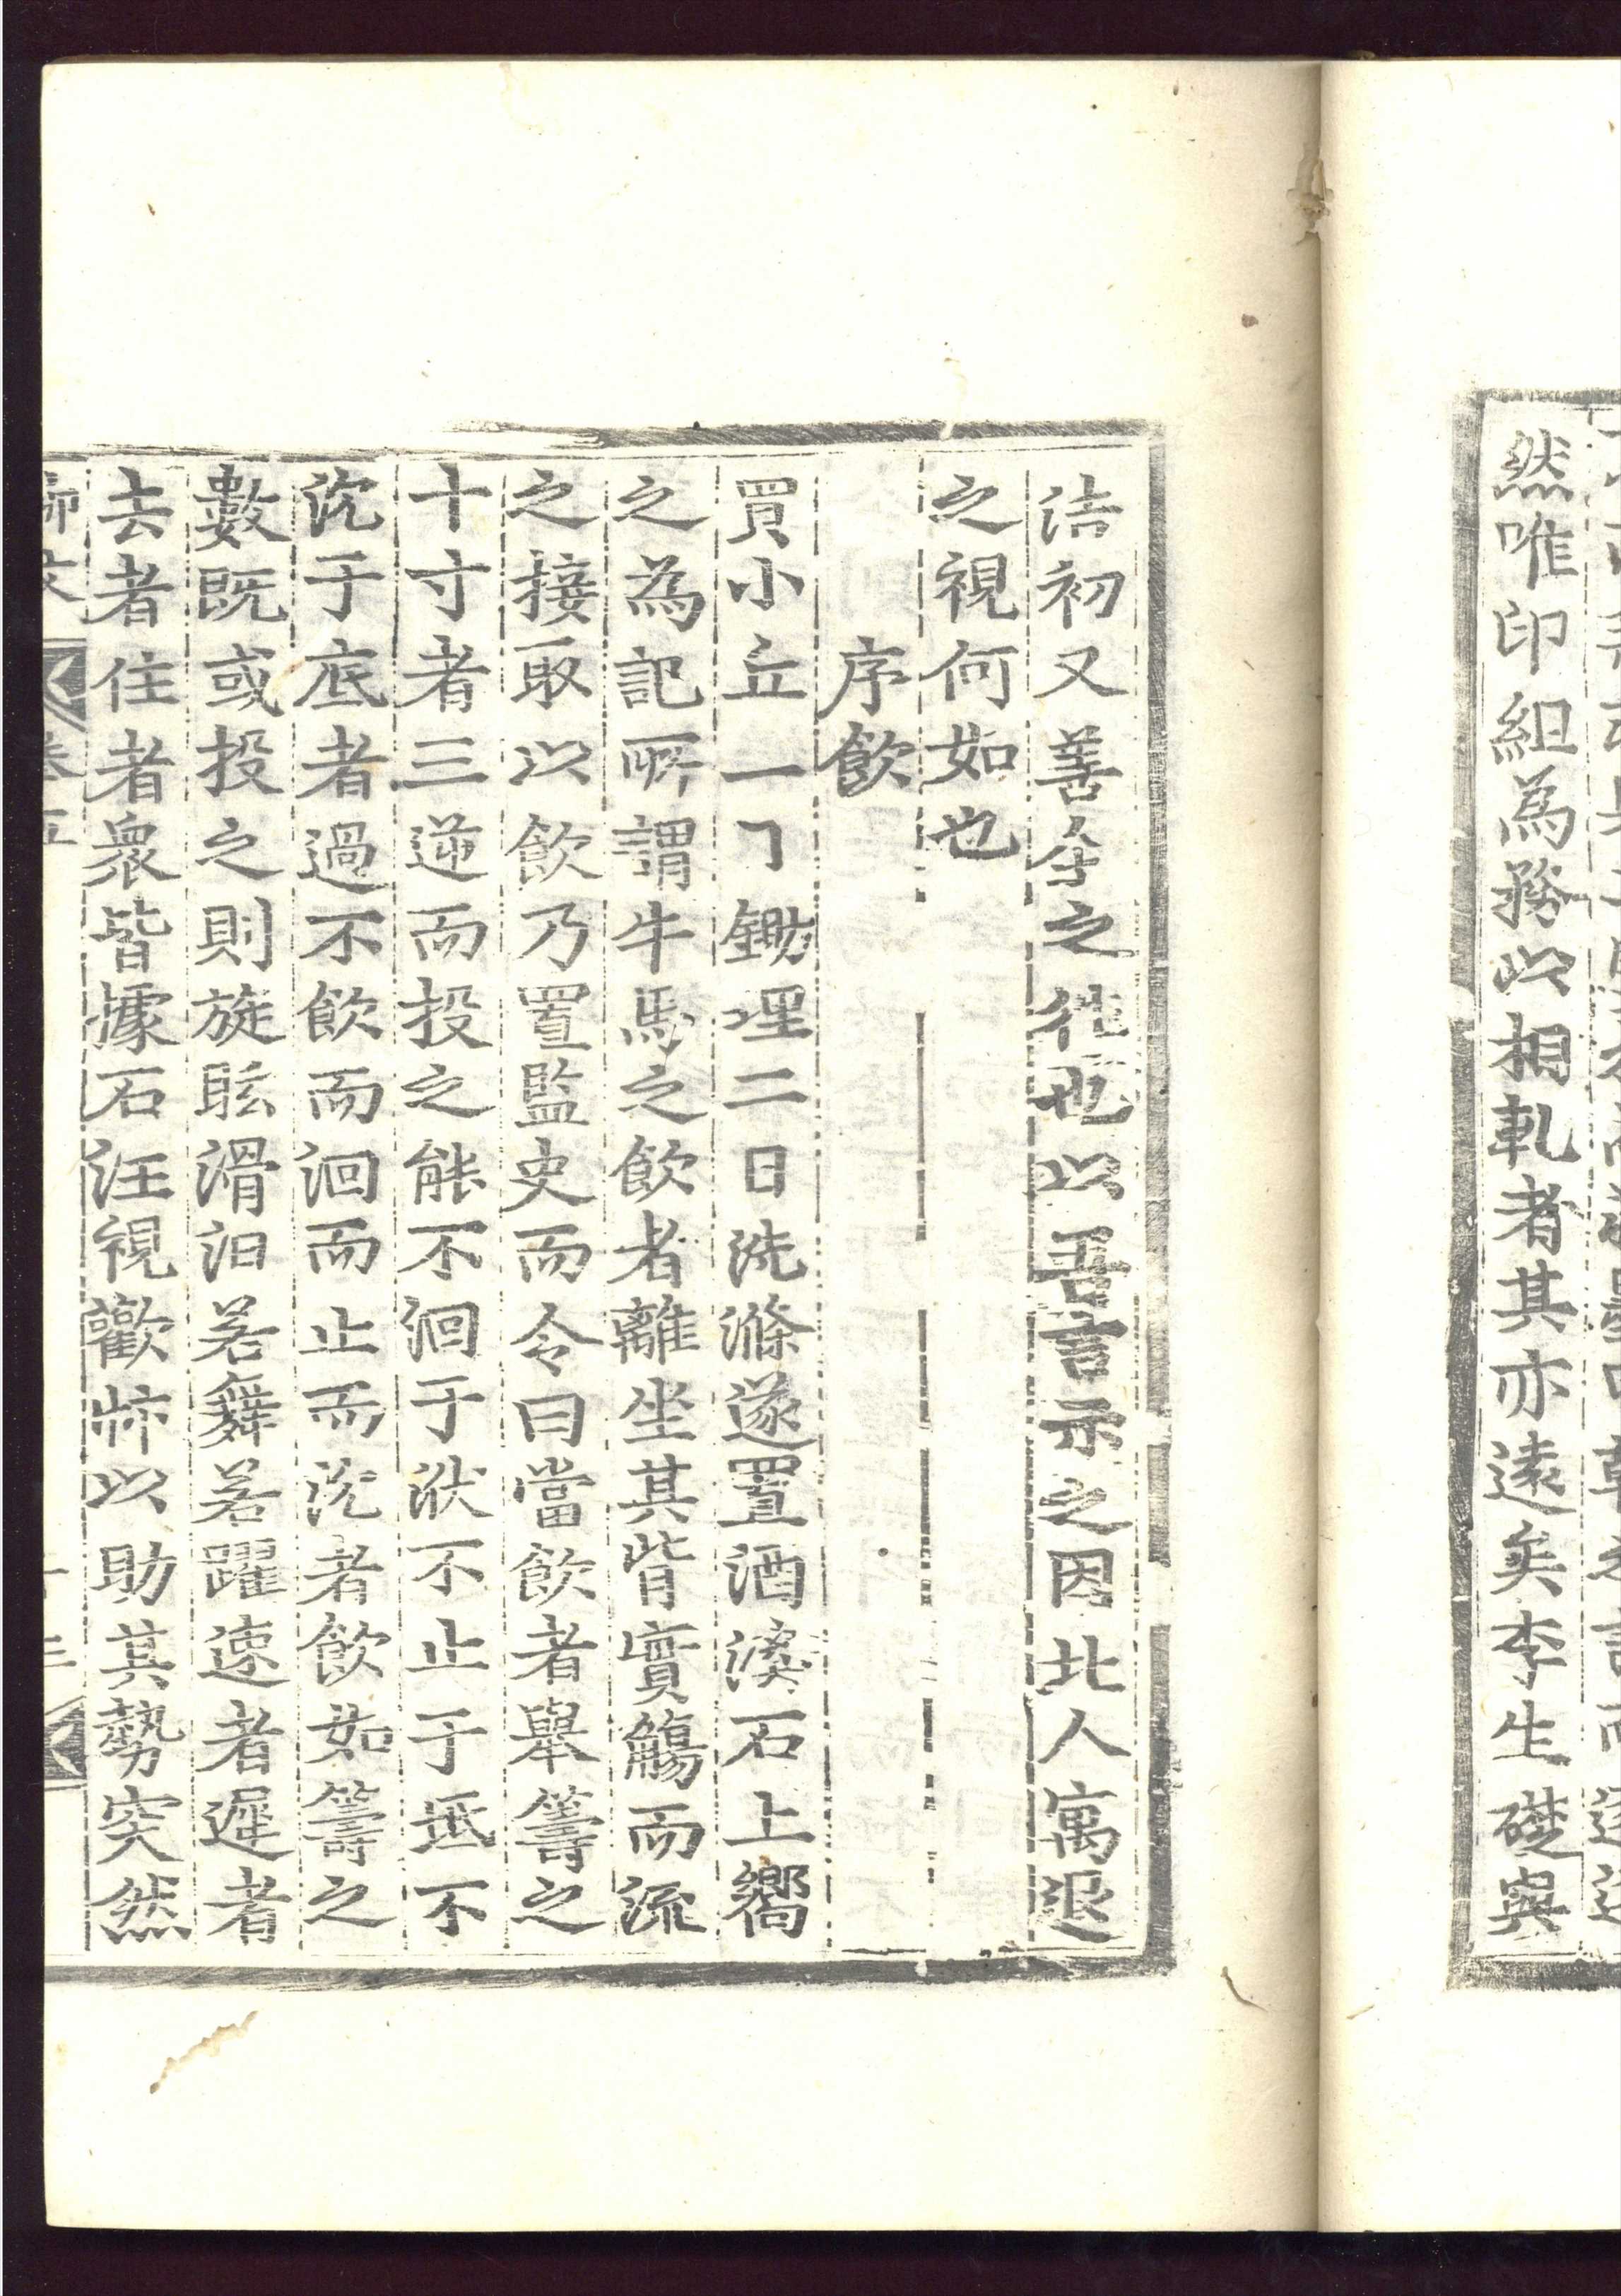 然唯印組為務以相軋者其亦遠矣李生礎與
浩初又善今之往也以吾言示之因北人寓退
之視何如也
序飲
買小丘一㇆鋤理二日洗滌遂置酒溪石上嚮
之為記所謂牛馬之飲者離坐其背實觴而流
之接取以飲乃置監史而令曰當飲者舉籌之
十寸者三逆而投之能不洄于洑不止于坻不
沈于底者過不飲而洄而止而沈者飲如籌之
數既或投之則旋眩滑汩若舞若躍速者遲者
去者住者衆皆據石注視歡忭以助其勢突然
卷五
十三